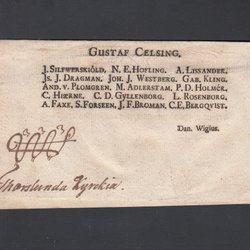 GUSTAF CELSING.
J. SILFWERSKIÖLD, N. E. HOFLING. A. LISSANDER.
JS. J. DRAGMAN. JOH. J. WESTBERG. GAB. KLING.
AND. V. PLOMGREN. M. ADLERSTAM. P. D. HOLMÉR.
C. HIÆRNE. C. D. GYLLENBORG. L. ROSENBORG.
A. FAXE, S. FORSEEN, J. F. BROMAN, C. E, BERGQVIST.
Dan. Wigius.
Thorslunda Kyrckia.